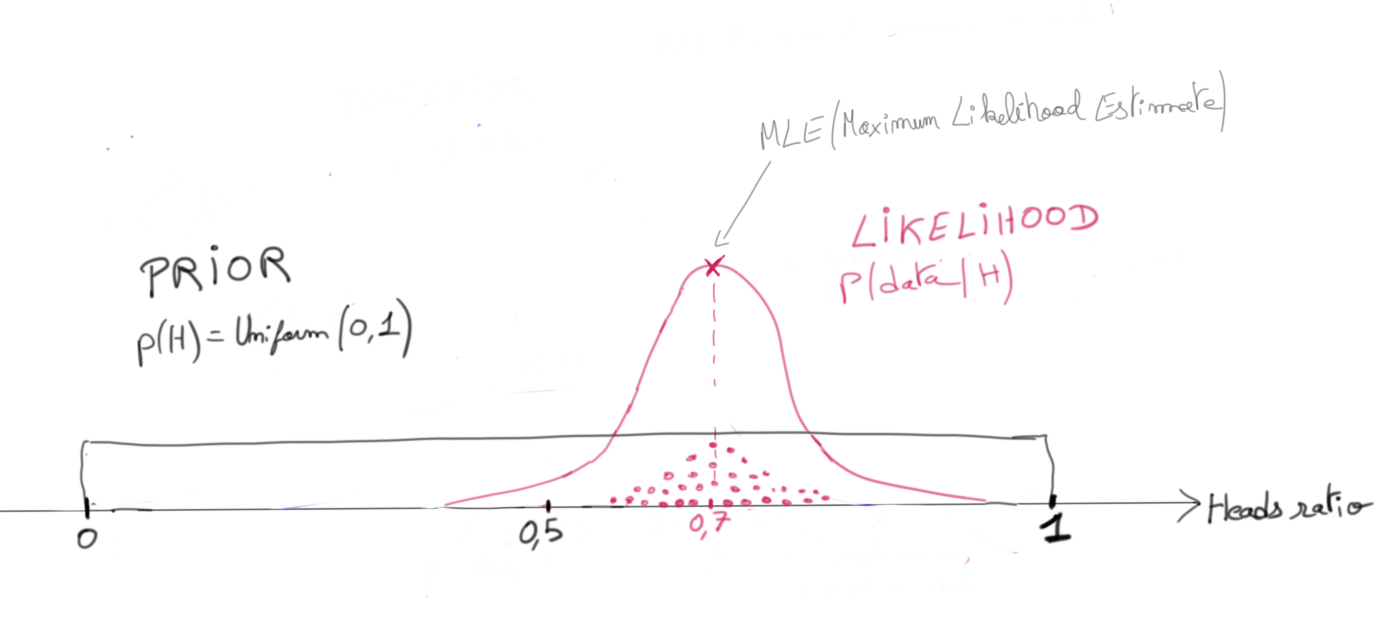 MLE (Maximum Likelihood Estimate)
LIKELIHOOD
P(data | H)
PRIOR
p(H) = Uniform (0,1)
0
0,5
0,7
1
Heads ratio